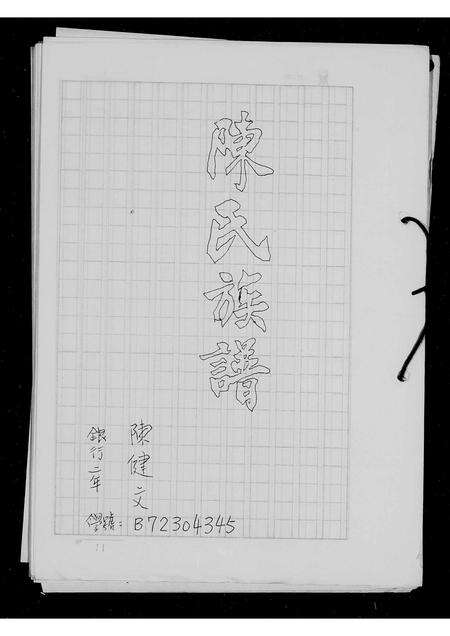 陳氏族譜
陳健文
銀行二年
學號: B72304345